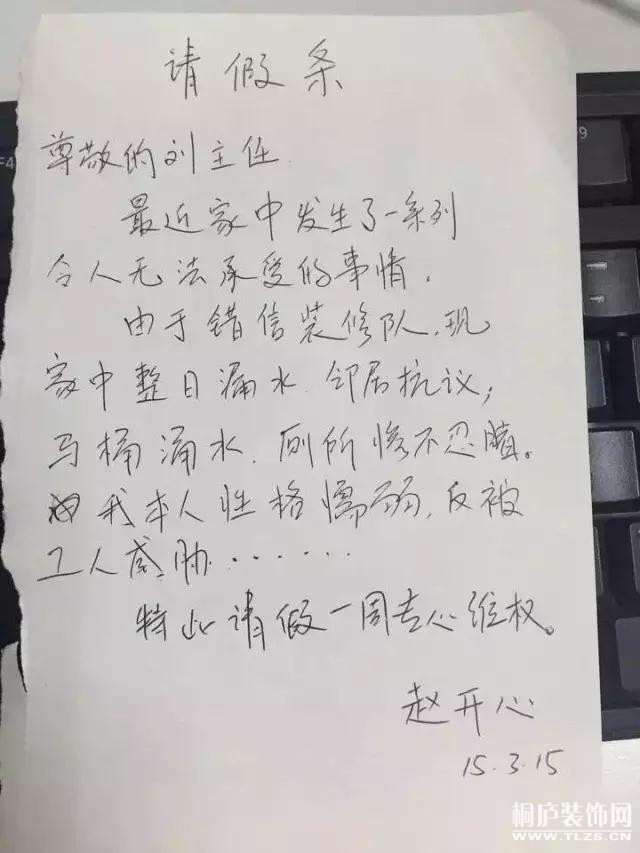 请假条
尊敬的刘主任
最近家中发生了一系列
令人无法承受的事情.
由于错信装修队.现
家中整日漏水.邻居抗议;
马桶涌水.厕所惨不忍睹。
我本人性格懦弱.反被
工人威胁······
特此请假一周专心维权。
赵开心
15.3.15
F4
F9
桐庐装饰网
WWW.TLZS.CN